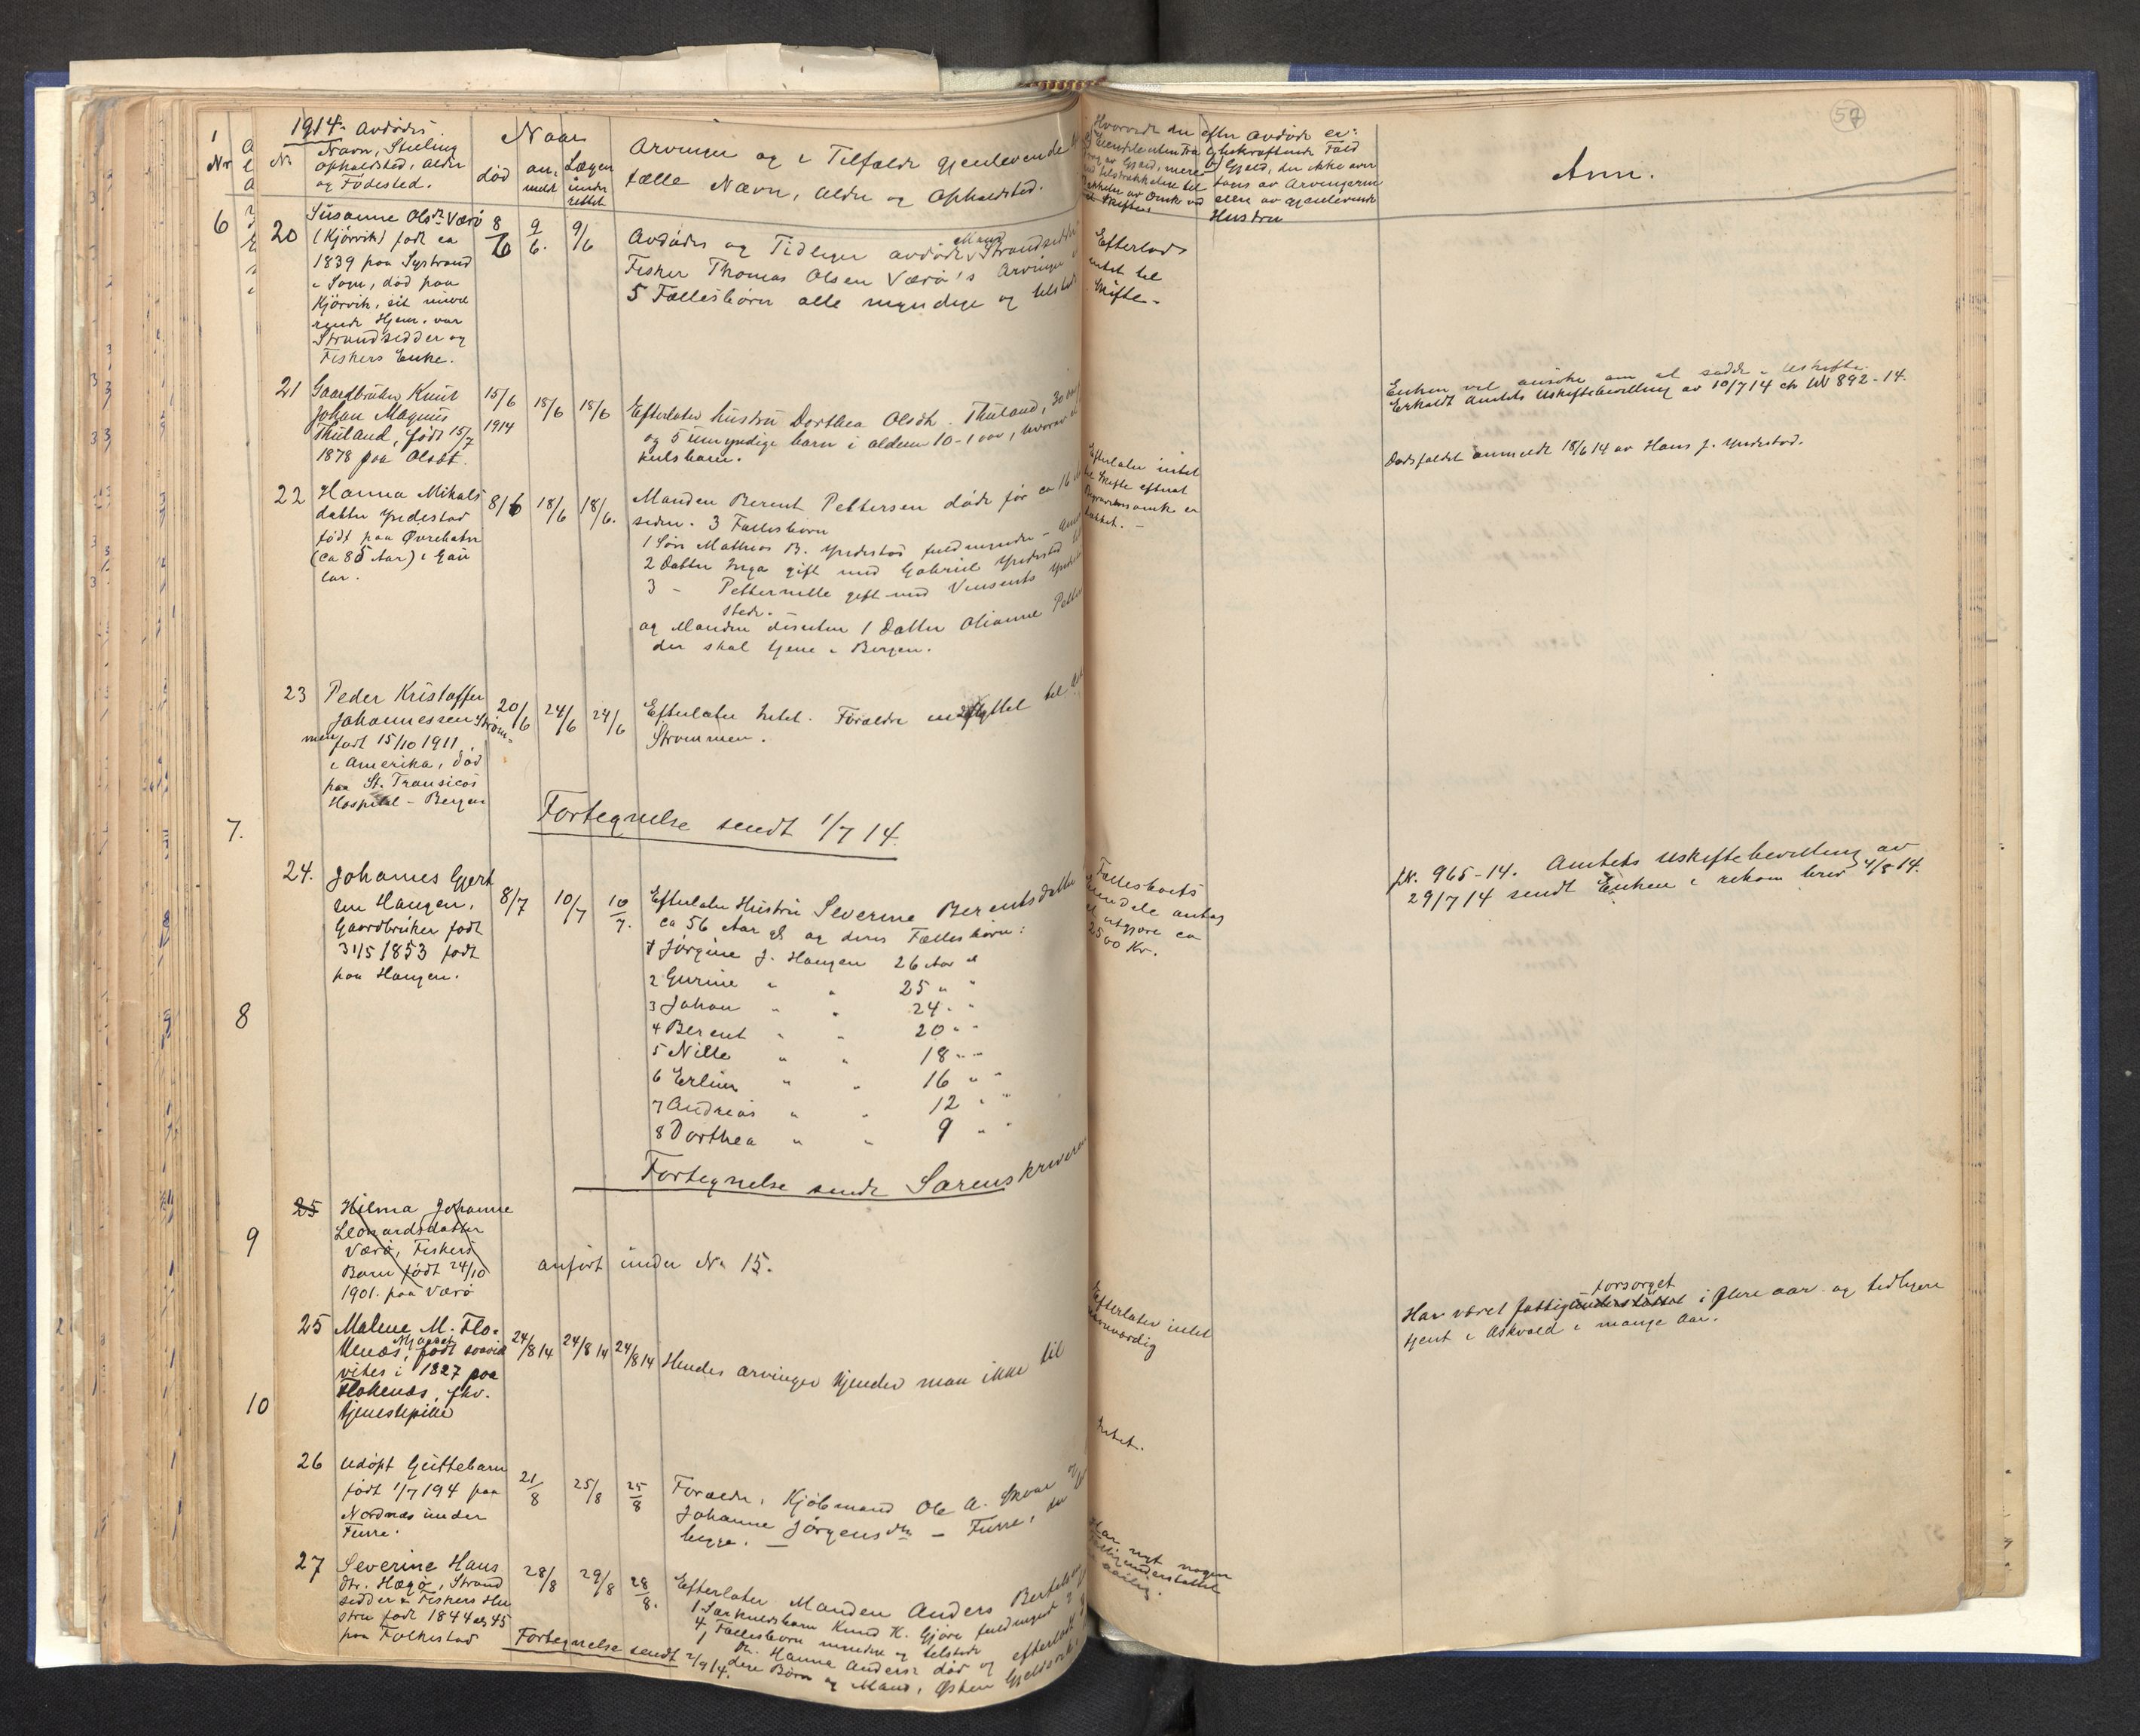 57
1914. Avdødes
Navn, Stilling
Opholdsted, Alder
og Fødested.
Nr
No
Naar
død
an-
meldt
Lægen
under
rettet
Arvinger og i Tilfælde gjenlevende
fælle Navn, Alder og Opholdsted.
Hvorvidt der efter Avdøde er:
Hustru
Anm.
6
20
Susanne Olsdr Værø
(Kjørvik) født ca
1839 paa Systrand
i Sogn, død paa
Kjørvik, sit nuvæ
rende Hjem, var
Strandsidder og
Fiskers Enke.
8/6
9/6.
9/6
Avdødes og Tidligere avdøde Mand Strandsidder
Fisker Thomas Olsen Værø's Arvinger
5 Fællesbørn alle myndige og tilstede
Efterlods
intet til
Skifte.
21
Gaardbruker Knut
Johan Magnus
Thuland, født 15/7
1878 paa Olset.
15/6
1914
18/6
18/6
Efterlater hustru Dorthea Olsdtr. Thuland, 30 aar
og 5 umyndige barn i alderen 10-1 aar, hvorav
kulsbarn.
Enken vil ansøke om at sidde i Uskifte.
Erholdt Amtets Uskiftebevilling av 10/7 14 No 892-14.
22
Hanna Mikals
datter Yndestad
født paa Øvrebatn
(ca 85 Aar) i Gau
lar.
8/6
18/6
18/6.
Manden Berent Pettersen døde for ca 16
siden. 3 Fællesbørn
1 Søn Mathias B. Yndestad fuldmyndig
2 Datter Inga gift med Gabriel Yndestad
3 - Petternille gift med Vensents
stede.
og Manden desuten 1 Datter Olianne
der skal tjene i Bergen.
Efterlater intet
til Skifte efterat
Begravelsesomk er
Dødsfaldet anmeldt 18/6 14 av Hans J. Yndestad.
23
Peder Kristoffer
Johannessen Strøm-
men født 15/10 1911
i Amerika, død
paa St. Fransicos
Hospital - Bergen
20/6
24/6
24/6
Efterlater Intet. Forældre indflyttet til
Strømmen.
Fortegnelse sendt 1/7 14.
7.
24.
Johannes Gjert
sen Haugen,
Gaardbruker født
31/5 1853 født
paa Haugen.
8/7
10/7
10/7.
Efterlater Hustru Severine Berentsdatter
ca 56 Aar gl og deres Fællesbørn:
1 Jørgine J. Haugen 26 Aar gl
2 Gurine " " 25 " "
3 Johan " " 24 " "
4 Berent " " 20 " "
5 Nille " " 18 " "
6 Erlin " " 16 " "
7 Andreas " " 12 " "
8 Dorthea " " 9 " "
Fællesboets
eiendele antag
at utgjøre ca
2500 Kr.
JN. 965-14. Amtets Uskiftebevilling av
29/7 14 sendt Enken i rekom brev 4/8 14.
8
Fortegnelse sendt Sorenskriveren
9
25
Hilma Johanne
Leonardsdatter
Værø, Fiskers
Barn født 24/10
1901. paa Værø
anført under No 15.
25
Malene M. Flo-
kenæs, Mjaaset født saavid
vites i 1827 paa
Flokenæs, fhv.
tjenestepike
24/8 14
24/8 14
24/8 14
Hendes arvinger kjender man ikke til
Efterlater intet
Har været fattigunderstøttet forsørget i flere aar og tidligere
tjent i Askvold i mange Aar.
10
26
Udøpt Guttebarn
født 1/7 194 paa
Nordnæs under
Furre.
21/8
25/8
25/8
Forældre, Kjøbmand Ole A. Skvar og
Johanne Jørgensdtr - Furre,
begge.
Intet.
27
Severine Hans
dtr. Hægø, Strand
sidder & Fiskers Hu
stru født 1844 el 45
paa Folkestad
28/8
29/8
28/8.
Efterlater Manden Anders Bertelsen
1 Særkuldsbarn Knud K. Gjøre fuldmyndig
4 Fællesbørn myndige og tilstede
1 Dtr. Hanna Andersd død og efterladt
dere Børn og Mand, Østen
Har nydt nogen
Fattigunderstøttelse
aarlig.
Fortegnelse sendt 2/9 14.